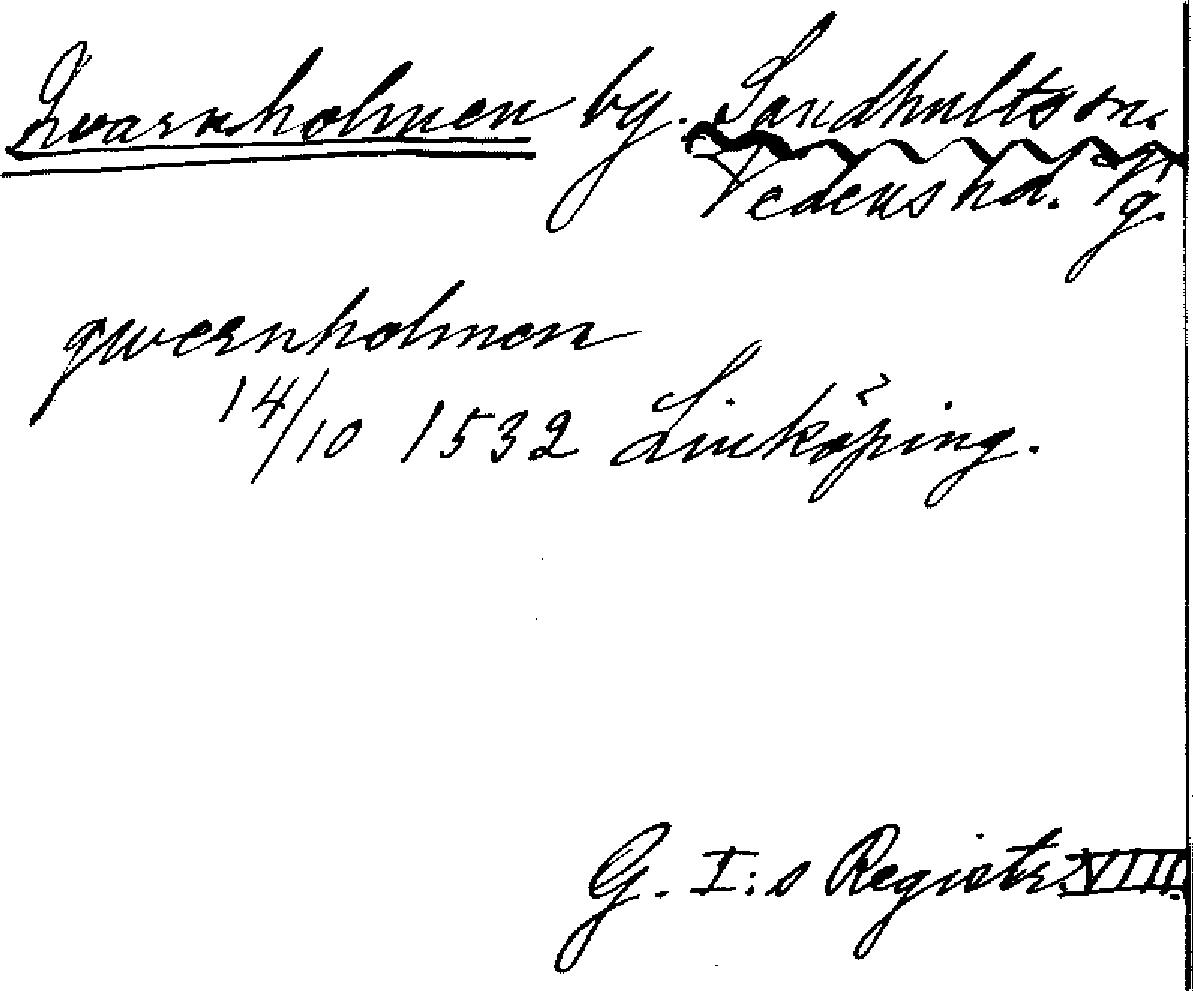 Qvarnholmen by. Sandhults sn.
Vedens hd. Vg.
qwernholmen
14/10 1532 Linköping.
G. I:s Registr. VIII.